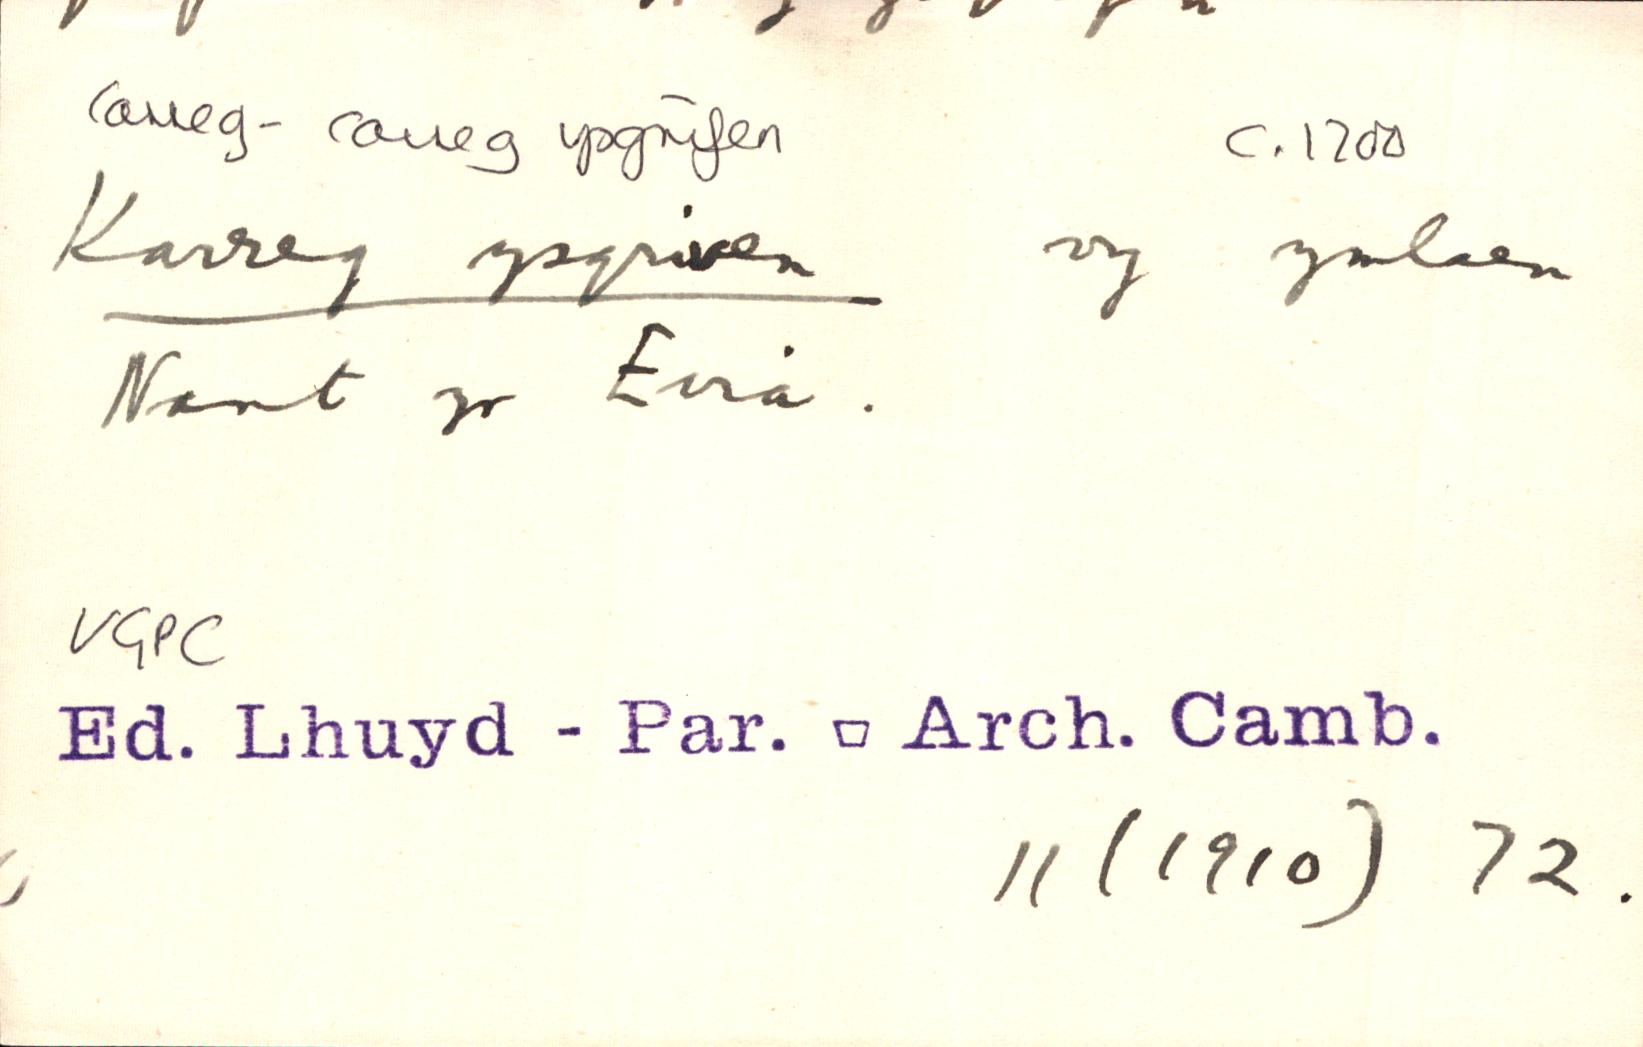 carreg - carreg ysgrifen c. 1700
Karreg ysgriven yng ymlaen
Nant yr Eira.
VGPC
Ed. Lhuyd - Par. Arch. Camb.
11 (1910) 72.